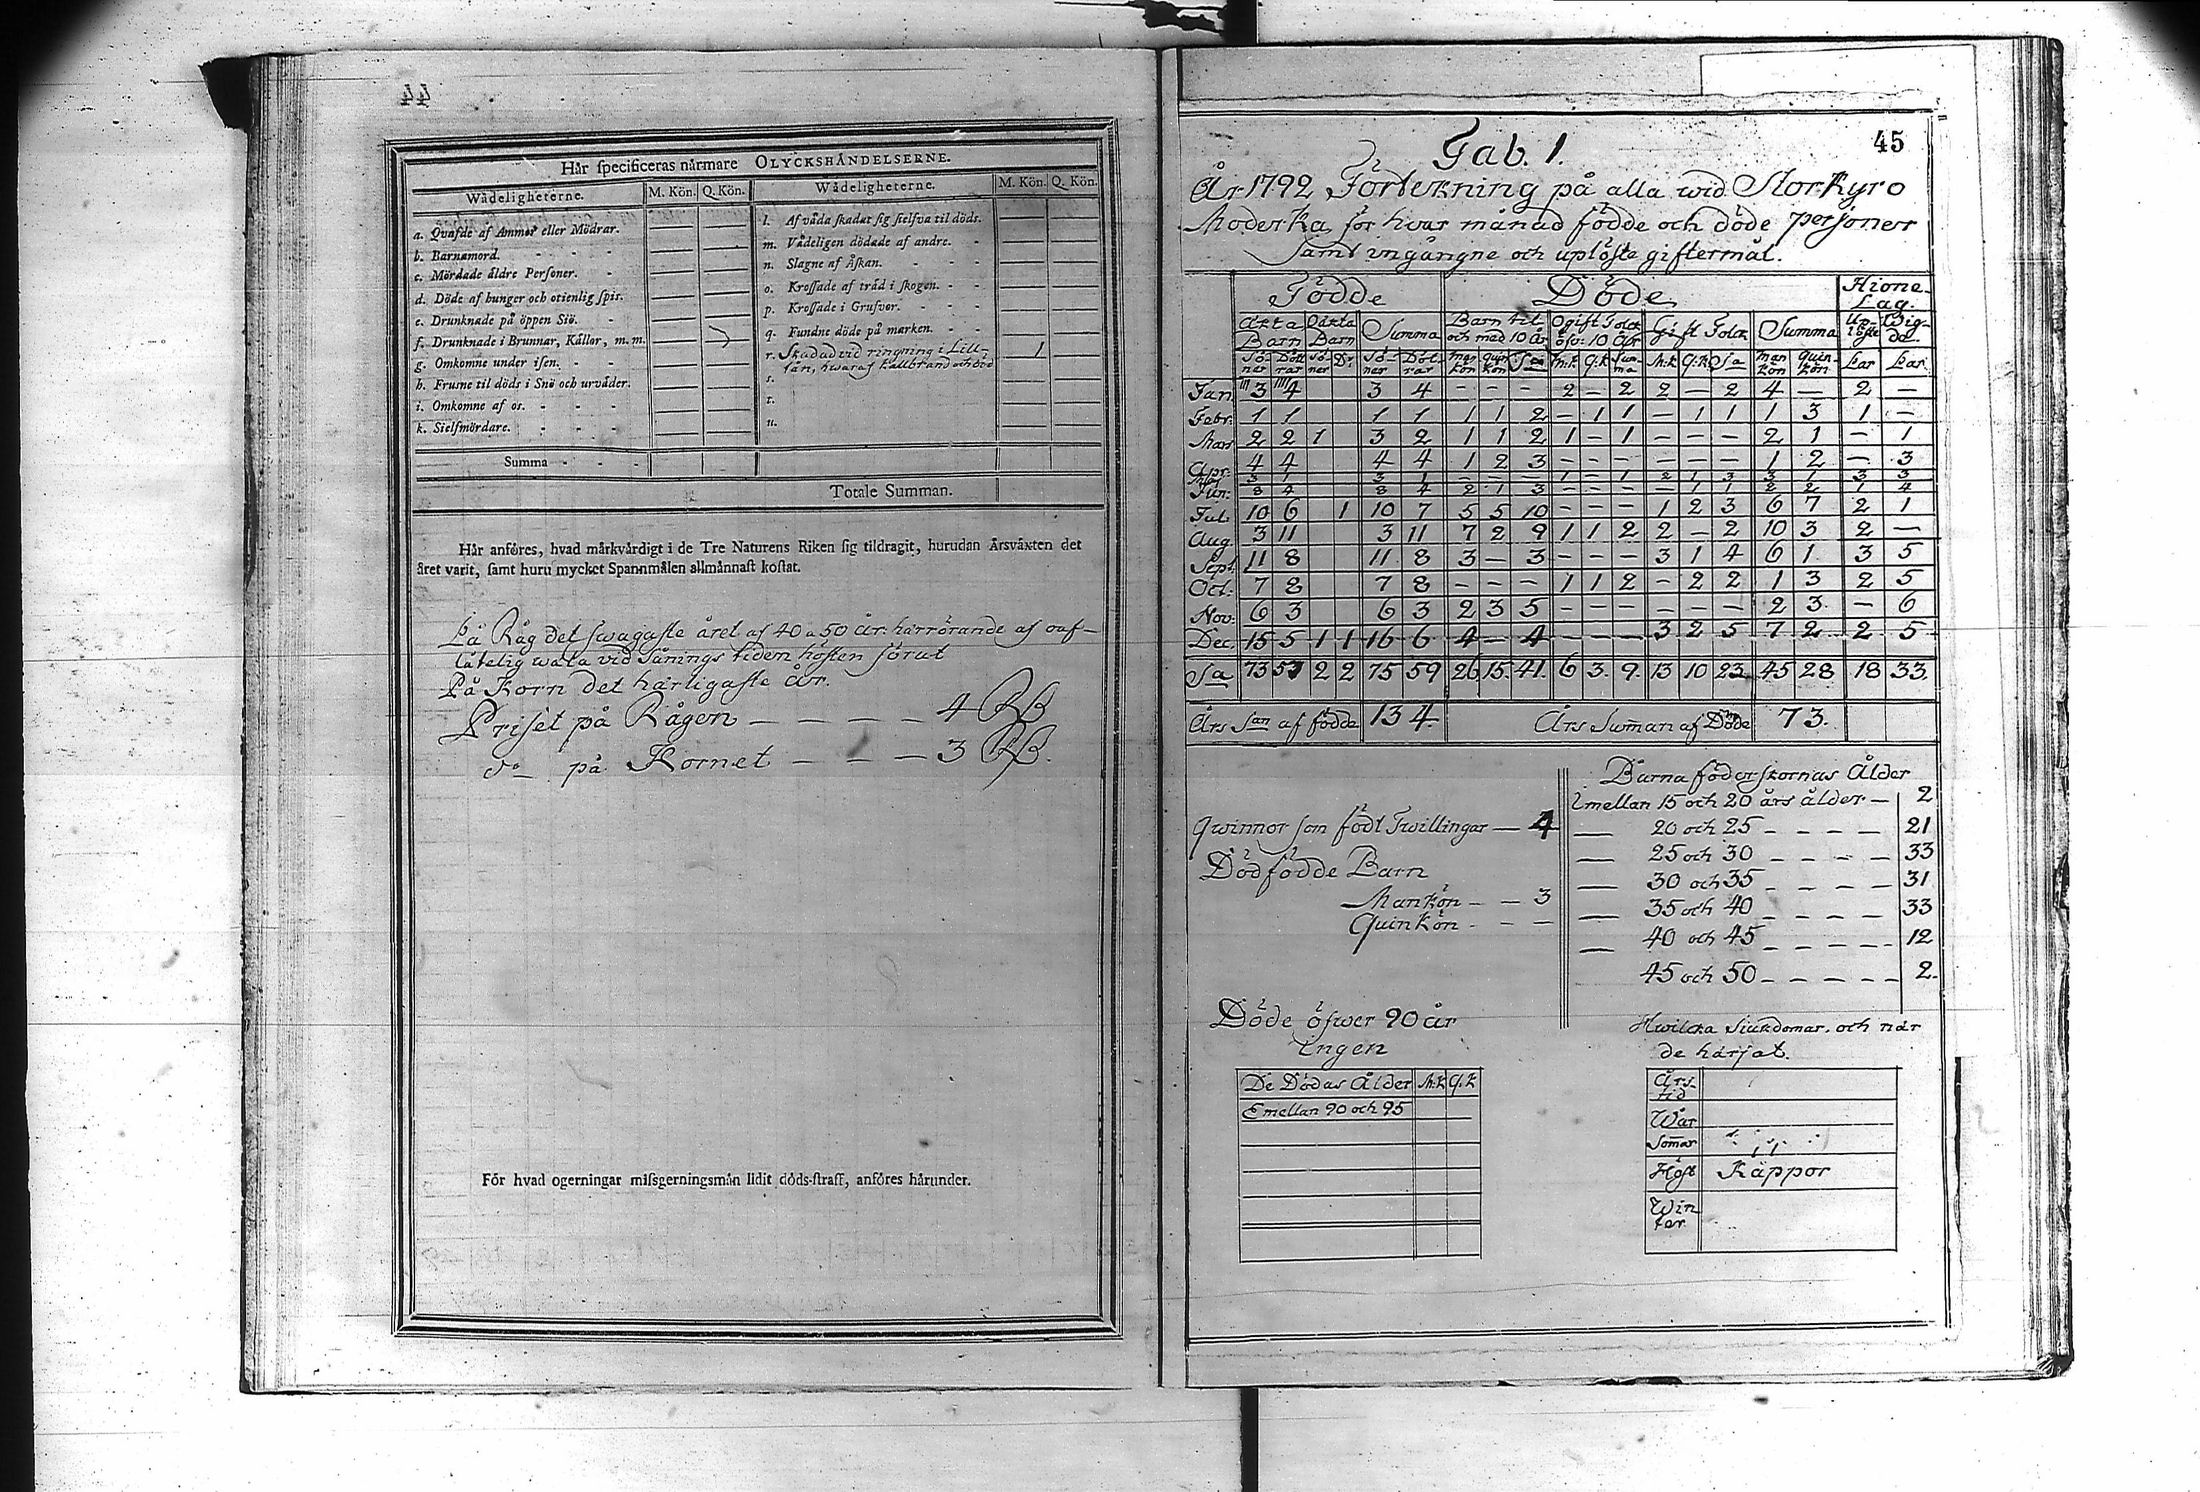 44
Hår specificeras nårmare OLYCKSHÅNDELSERNE.
Wådeligheterne. M. Kön. Q. Kön. Wådeligheterne. M. Kön. Q. Kön.
a. Qvafde af Ammor eller Mödrar. — —
b. Barnamord. — —
c. Mördade åldre Personer. — —
d. Döde af hunger och otienlig spis. — —
e. Drunknade på öppen Siö. — —
f. Drunknade i Brunnar, Kållor, m. m. —
g. Omkomne under isen. — —
h. Frusne til döds i Snö och urvåder. — —
i. Omkomne af os. — —
k. Sielfmördare. — —
l. Af våda skadat sig sielfva til döds. — —
m. Vådeligen dödade af andre. — —
n. Slagne af Åskan. — —
o. Krossade af tråd i skogen. — —
p. Krossade i Grufvor. — —
q. Fundne döde på marken. — —
r. Skadad vid ringning i Lill- 1 —
lan, hwaraf kallbrand och död
s. — —
t. — —
u. — —
Summa
Totale Summan.
Hår anföres, hvad mårkvårdigt i de Tre Naturens Riken sig tildragit, hurudan Årsvåxten det
året varit, samt huru mycket Spannmålen allmånnast kostat.
På Råg det swagaste året af 40 a 50 år härrörande af oaf-
låtelig wäta vid Sånings tiden hösten förut
På Korn det härligaste år.
Priset på Rågen — — — — 4 Rß
do på Kornet — — — 3 Rß.
För hvad ogerningar missgerningsmån lidit döds-straff, anföres hårunder.
45
Tab. 1.
År 1792 Förtekning på alla wid Storkyro
Moderka för hvar månad födde och döde personer
samt ingångne och uplöste giftermål.
Födde Döde Hione-
Lag.
Äkta Barn Oäkta Barn Summa Barn til och med 10 år Ogift Folck öfv: 10 År Gift Folck Summa Up-löste Wig-da
Sö-ner Dött-rar Sö-ner D: Sö-ner Döt-rar man kön quin kön Sa m.k q.k Sum-ma M.k Q.k Sa Man kön Quin-kön Par Par
Jan 3 4 3 4 - - - 2 - 2 2 - 2 4 — 2 —
Febr: 1 1 1 1 1 1 2 - 1 1 - 1 1 1 3 1 -
Mart 2 2 1 3 2 1 1 2 1 - 1 - - - 2 1 - 1
Apr: 4 4 4 4 1 2 3 - - - - - - 1 2 - 3
Maj 3 1 3 1 - - - 1 - 1 2 1 3 3 1 3 3
Jun: 8 4 8 4 2 1 3 - - - - 1 1 2 2 1 4
Jul: 10 6 1 10 7 5 5 10 - - - 1 2 3 6 7 2 1
Aug 3 11 3 11 7 2 9 1 1 2 2 - 2 10 3 2 —
Sept: 11 8 11 8 3 - 3 - - - 3 1 4 6 1 3 5
Oct: 7 8 7 8 - - - 1 1 2 - 2 2 1 3 2 5
Nov: 6 3 6 3 2 3 5 - - - - - - 2 3 - 6
Dec: 15 5 1 1 16 6 4 - 4 - - - 3 2 5 7 2 2 5
Sa 73 57 2 2 75 59 26 15. 41. 6 3. 9. 13 10 23 45 28 18 33.
Års San af födde 134. Års Suman af Döde 73.
Barna föderskornas Ålder
Emellan 15 och 20 års ålder — 2
Qwinnor som födt Twillingar — 4
— 20 och 25 - - - - 21
Dödfödde Barn
— 25 och 30 - - - - 33
— 30 och 35 - - - - 31
Mankön - - 3
— 35 och 40 - - - - 33
Quinkön - - -
— 40 och 45 - - - - 12
45 och 50 - - - - 2.
Döde öfwer 90 år
Ingen
De Dödas Ålder M.k Q.k
Emellan 90 och 95
Hwilcka Siukdomar och når
de härjat.
Års-
tid
Wår
Somar
Höst Käppor
Win
ter